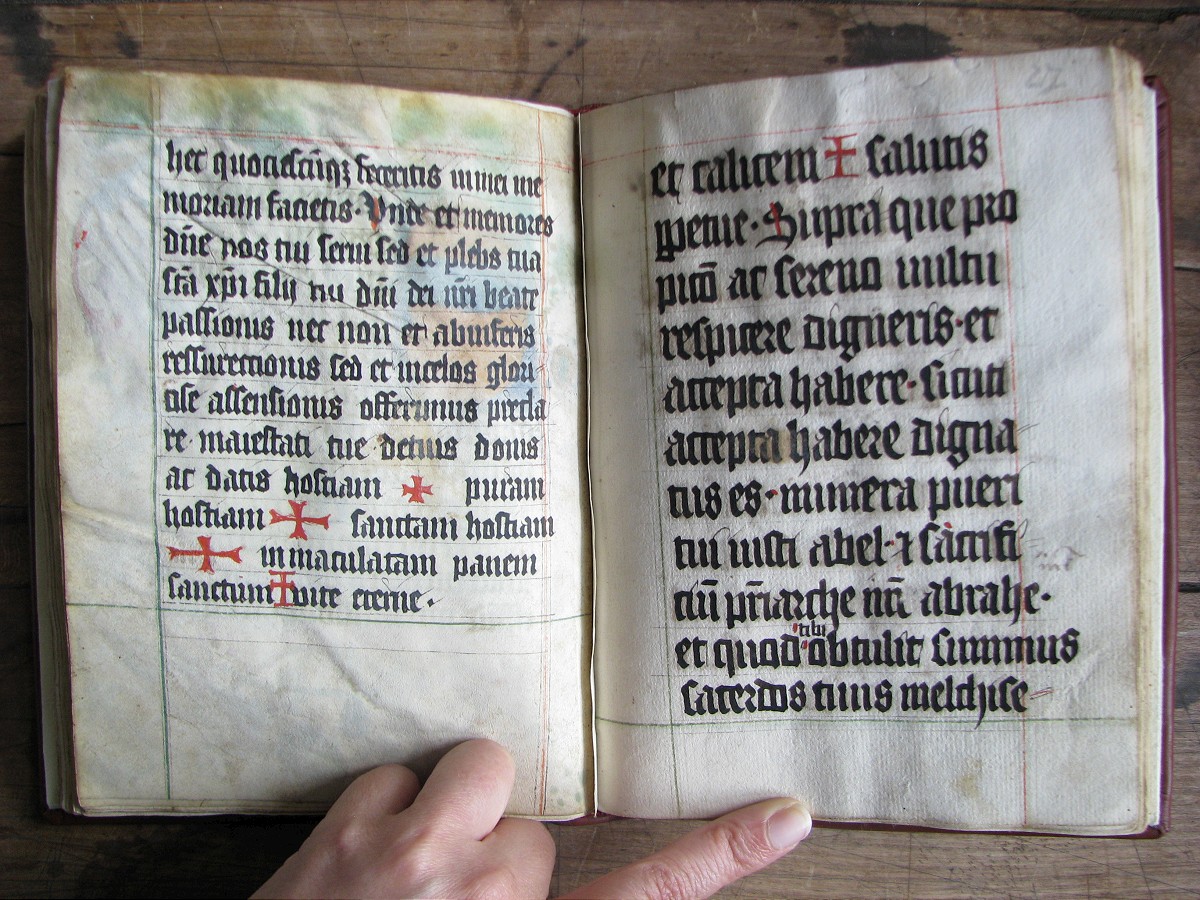 hec quociēscūq; feceritis in mei me
moriam facietis · Unde et memores
dn̄e nos tui serui sed et plebs tua
sc̄a xp̄i filij tui dn̄i dei nr̄i beate
passionis nec non et ab inferis
ressurectionis sed et in celos glori
ose assensionis offerimus precla
re maiestati tue de tuis donis
ac datis hostiam ✠ puram
hostiam ✠ sanctam hostiam
✠ inmaculatam panem
sanctum ✠ vite eterne ·
27
et calicem ✠ salutis
ꝑpetue · Supra que pro
picio ac sereno uultu
respicere digneris · et
accepta habere · sicuti
accepta habere digna
tus es · munera pueri
tui iusti abel · ⁊ sacrifi
ciū pr̄iarche nr̄i abrahe ·
et quod tibi obtulit summus
sacerdos tuus melchise